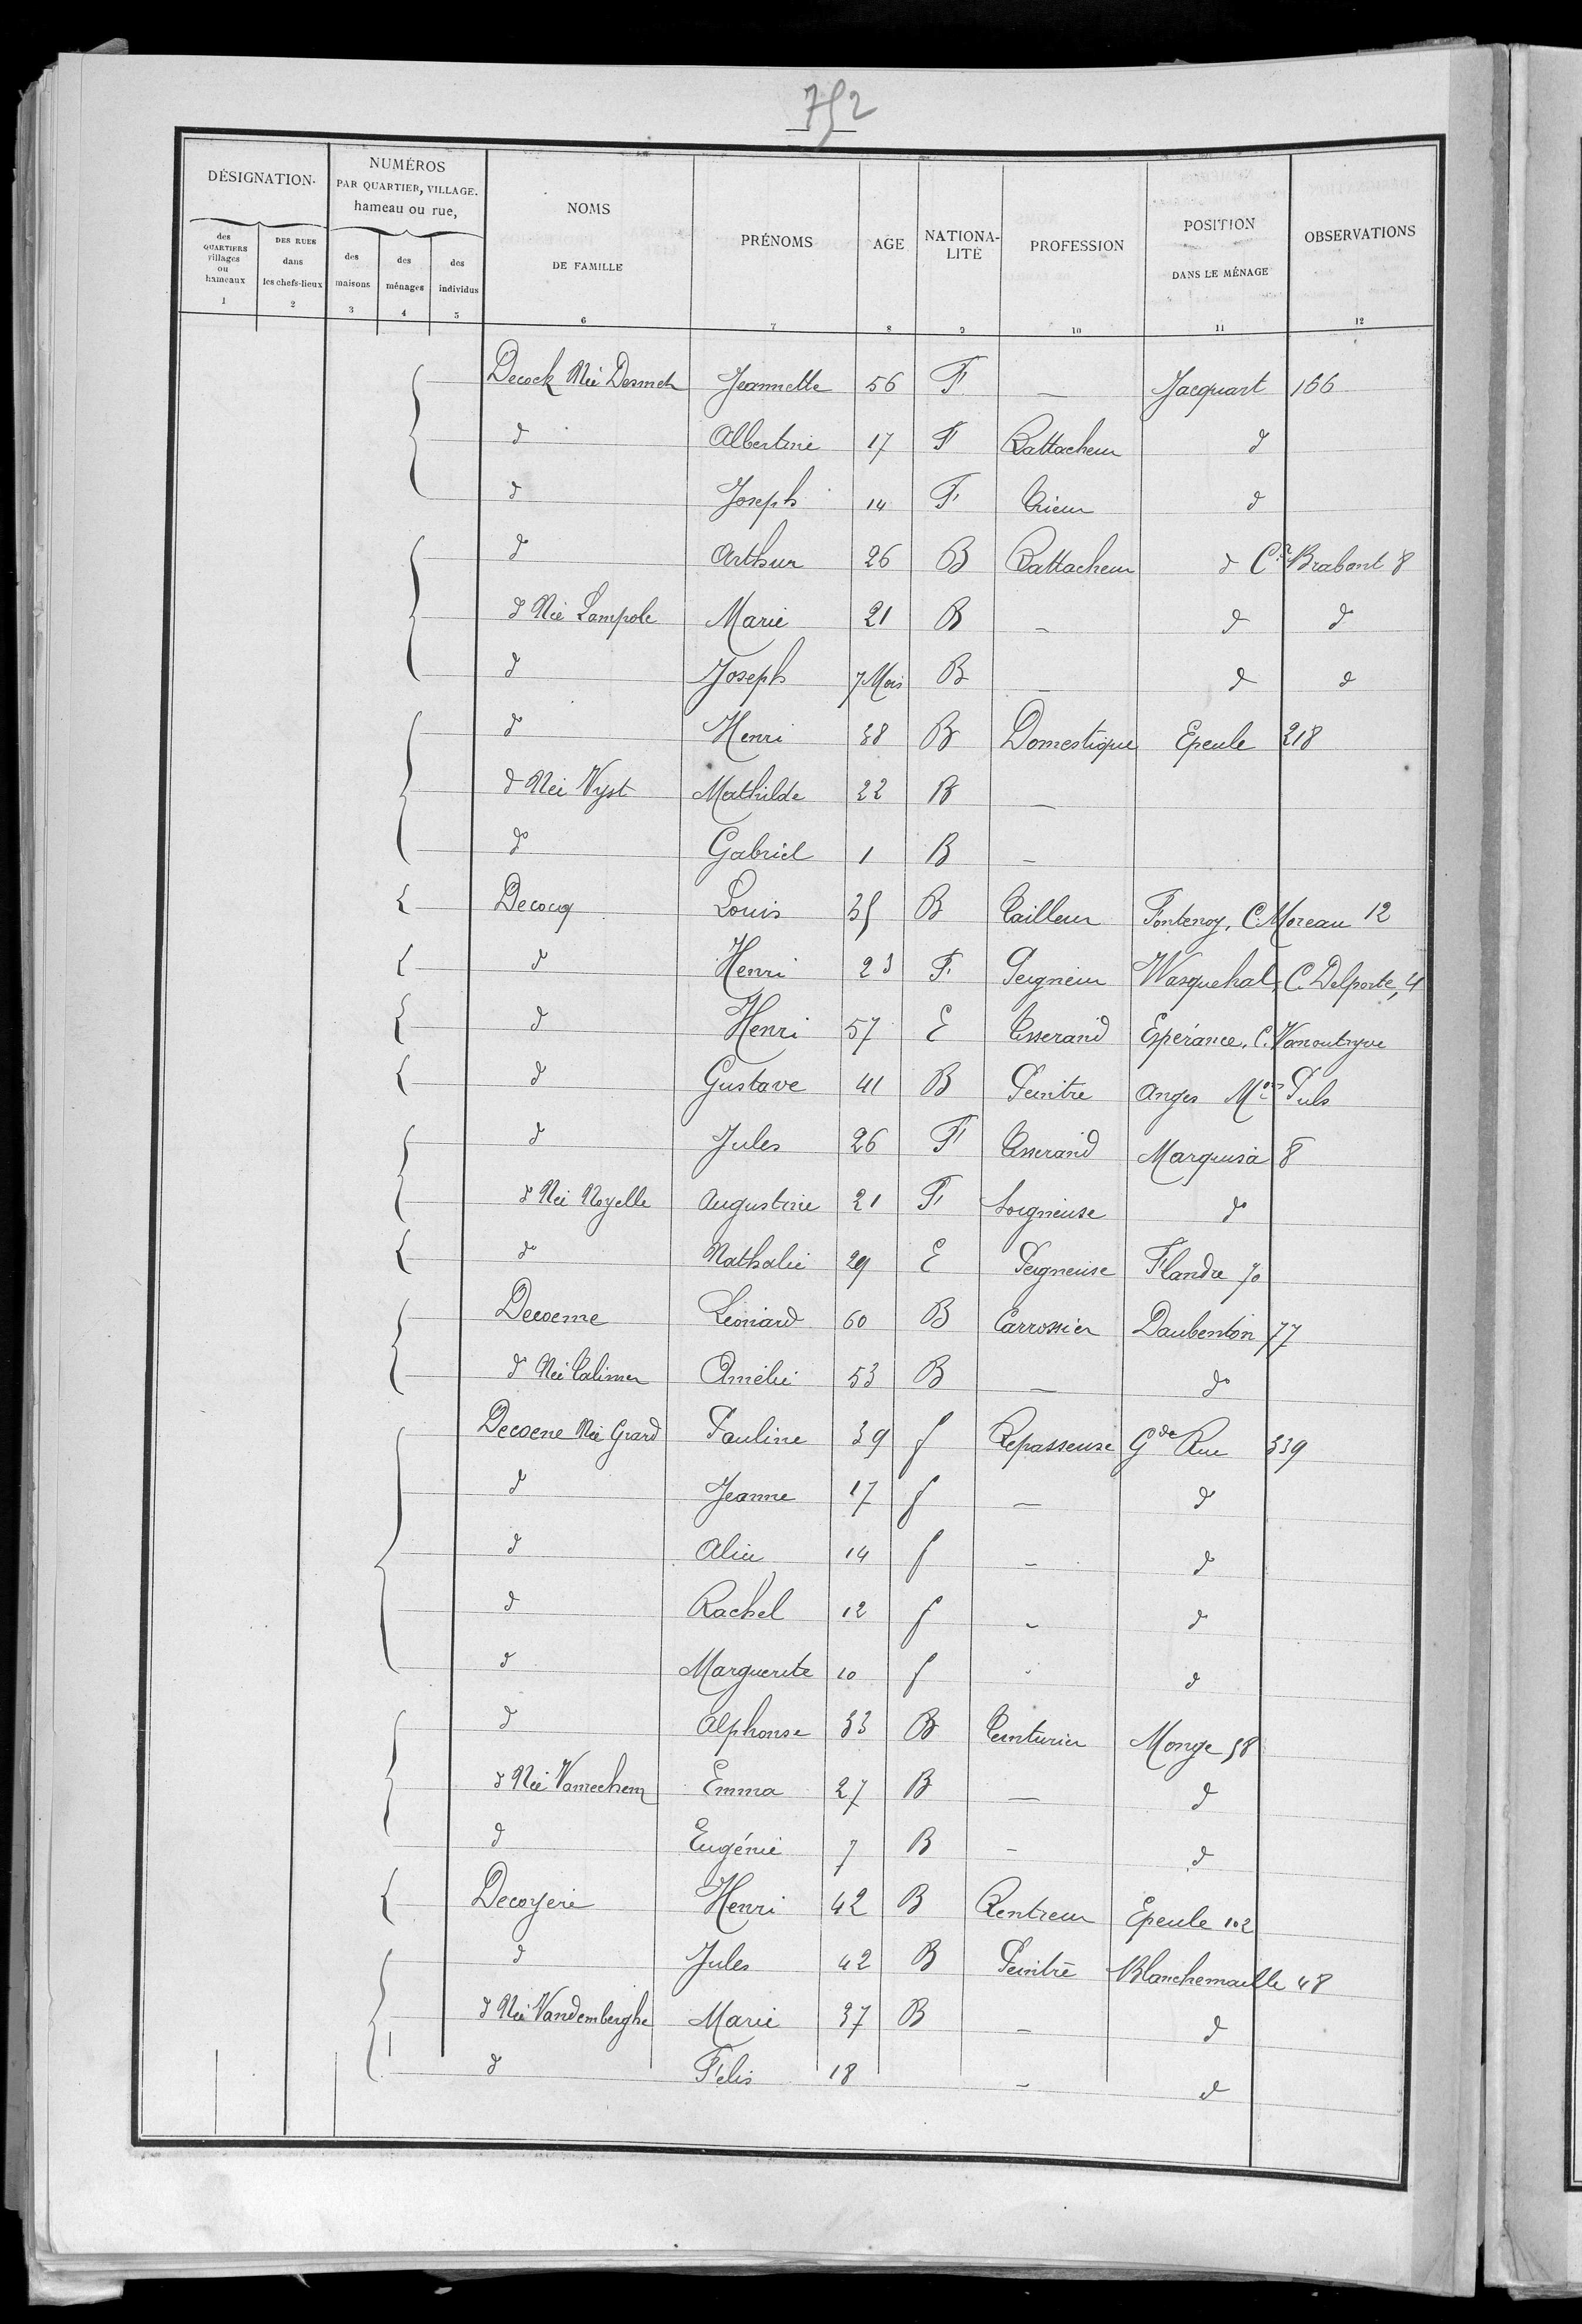 752
DÉSIGNATION.
NUMÉROS
PAR QUARTIER, VILLAGE.
hameau ou rue,
NOMS
DE FAMILLE
PRÉNOMS
AGE
NATIONA-
LITÉ
PROFESSION
POSITION
DANS LE MÉNAGE
OBSERVATIONS
des QUARTIERS villages ou hameaux
DES RUES dans les chefs-lieux
des maisons
des ménages
des individus
1 2 3 4 5 6 7 8 9 10 11 12
Decock Née Desmet Jeannette 56 F — Jacquart 166
d Albertine 17 F Rattacheur d
d Joseph 14 F Trieur d
d Arthur 26 B Rattacheur d Cr Brabant 8
d Née Lampole Marie 21 B — d d
d Joseph 7 Mois B — d d
d Henri 38 B Domestique Epeule 218
d Née Vyst Mathilde 22 B —
do Gabriel 1 B —
Decocq Louis 35 B Tailleur Fontenoy, C. Moreau 12
d Henri 23 F Peigneur Wasquehal, C. Delporte, 4
d Henri 57 E Tisserand Espérance, C. Vanoutryve
d Gustave 41 B Peintre Anges Mon Puls
d Jules 26 F Tisserand Marquisa 8
d Née Noyelle Augustine 21 F Soigneuse do
do Nathalie 29 E Peigneuse Flandre 70
Decoeme Léonard 60 B Carrossier Daubenton 77
d Née Calimer Amélie 53 B — do
Decoene Née Grard Pauline 39 f Repasseuse Gde Rue 339
d Jeanne 17 f — d
d Alice 14 f - d
d Rachel 12 f - d
d Marguerite 10 f - d
d Alphonse 33 B Teinturier Monge 58
d Née Vanechem Emma 27 B — d
d Eugénie 7 B - d
Decoyere Henri 42 B Rentreur Epeule 102
d Jules 42 B Peintre Blanchemaille 48
d Née Vandemberghe Marie 37 B — d
d Félis 18 — d